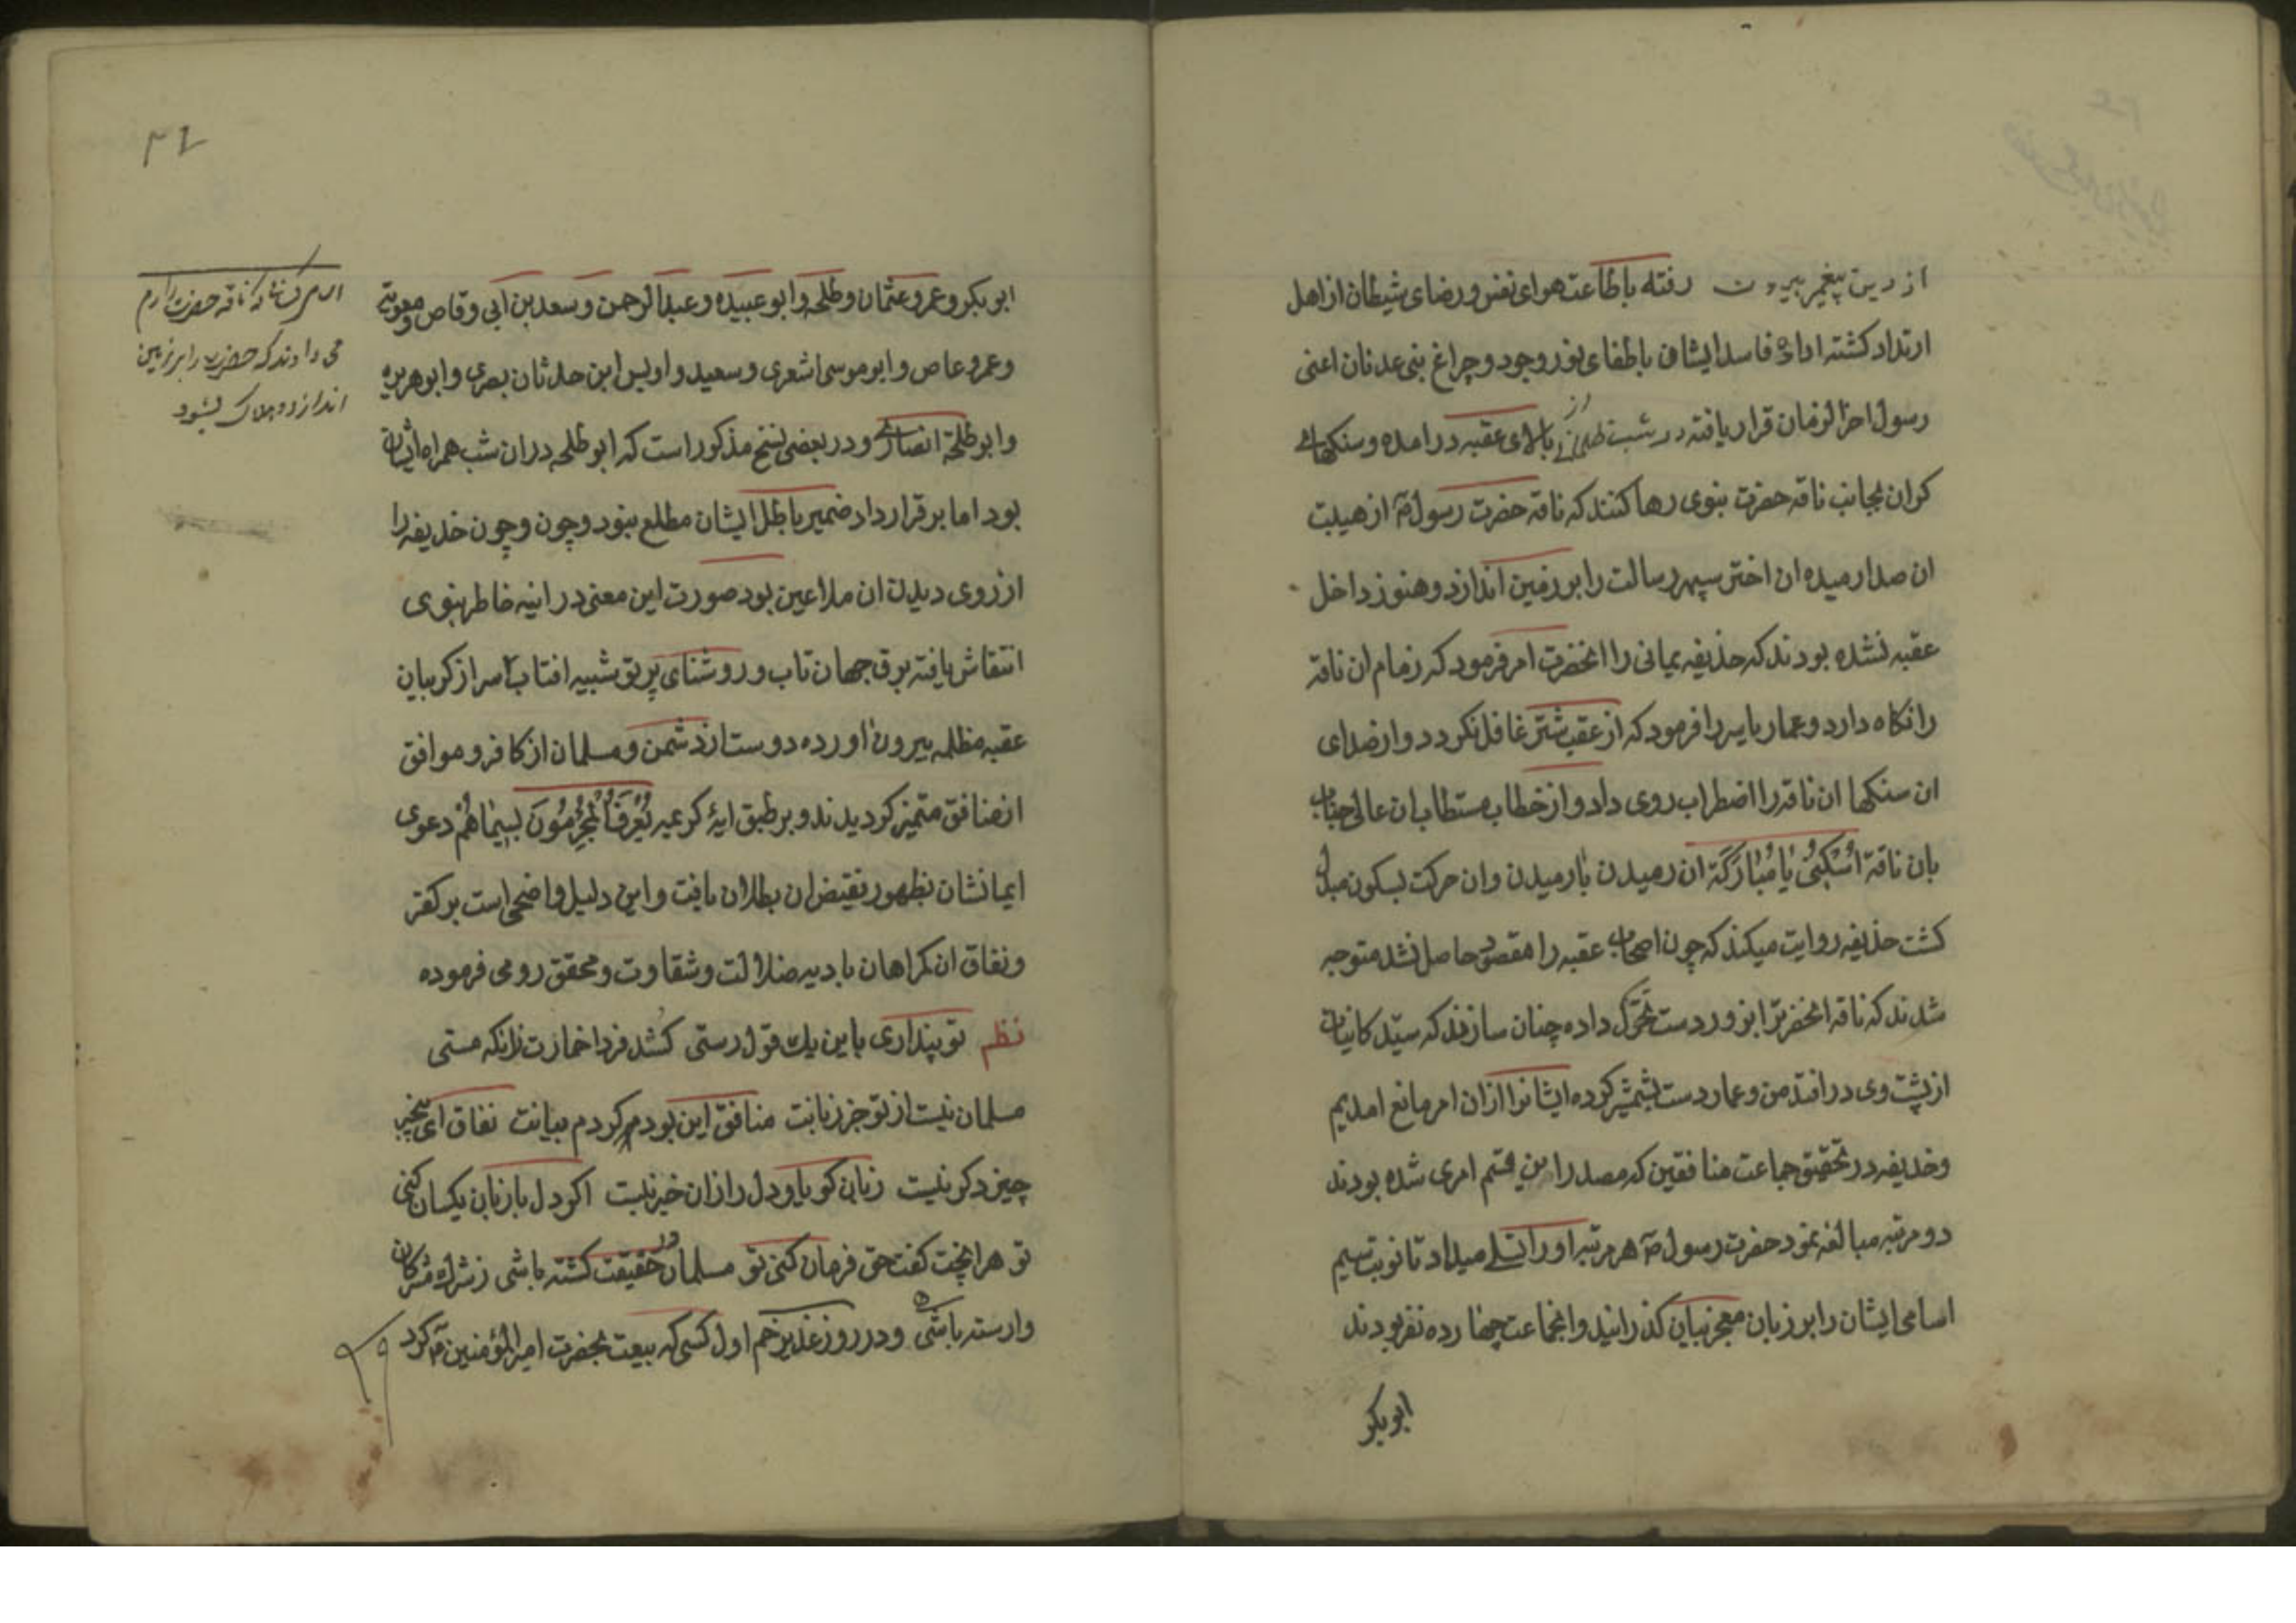 از دین پیغمبر بیرون رفته باطاعت هوای نفس و رضای شیطان از اهل
ارتداد کشته اداده فاسد ایشان باطفای نور وجود و چراغ بنی عدنان اعنی
رسول اخر الزمان قرار یافته در شب ظلمانی از بالای عقبه در امده و سنکهای
کران بجانب ناقه حضرت نبوی رها کنند که ناقه حضرت رسول ص از هیبت
ان صدا رمیده ان اختر سپهر رسالت را بر زمین اندازد و هنوز داخل
عقبه نشده بودند که حذیفه یمانی را انحضرت امر فرمود که زمام ان ناقه
را نکاه دارد و عمار یاسر را فرمود که از عقب شتر غافل نکردد و از صدای
ان سنکها ان ناقه را اضطراب روی داد و از خطاب مستطاب ان عالی جناب
بان ناقه اُسْکُنِی یٰا مُبٰارَکَة ان رمیدن بارمیدن وان حرکت بسکون مبدل
کشت حذیفه روایت میکند که چون اصحاب عقبه را مقصود حاصل نشد متوجه
شدند که ناقه انحضرترا بزور دست تحرک داده چنان سازند که سید کاینات
از پشت وی در افتد من و عمار دست بشمشیر کرده ایشانرا ازان امر مانع امدیم
وخذیفه در تحقیق جماعت منافقین که مصدر این قسم امری شده بودند
دو مرتبه مبالغه نمود حضرت رسول ص هر مرتبه او را تسلی میداد تا نوبت سیم
اسامی ایشان را بر زبان معجز بیان کذرانید وانجماعت چهارده نفر بودند
ابوبکر
ابوبکر و عمر و عثمان و طلحه و ابو عبیده و عبد الرحمن و سعد بن ابی وقاص و معویة
و عمرو عاص و ابو موسی اشعری و سعید و اویس ابن حدثان بصری و ابو هریره
و ابو طلحه انصاری و در بعضی نسخ مذکور است که ابو طلحه دران شب همراه ایشان
بود اما بر قرارداد ضمیر باطل ایشان مطلع نبود و چون و چون خذیفه را
ارزوی دیدن ان ملاعین بود صورت این معنی در اینه خاطر نبوی
انتقاش یافته برق جهان تاب و روشنای پرتو شبیه افتاب سر از کریبان
عقبه مظلمه بیرون اورده دوست از دشمن و مسلمان از کافر و موافق
از منافق متمیز کردیدند و بر طبق ایهٔ کرعیه یُعْرَفُ الْمُجْرِمُونَ بِسِیمٰاهُمْ دعوی
ایمانشان بظهور نقیض ان بطلان یافت و این دلیل واضحی است بر کفر
ونفاق ان کمراهان بادیه ضلالت و شقاوت و محقق رومی فرموده
نظم توپنداری باین یک قول رستی کشد فردا خمارت زانکه مستی
مسلمان نیست از تو جز زبانت منافق این بود مر کردم بیانت نفاق ای بیخبر
چیز دکر نیست زبان کویا و دل را زان خبر نیست اکر دل با زبان یکسان کنی
تو هر انچت کفت حق فرمان کنی تو مسلمان در حقیقت کشته باشی ز شرک مشرکان
وارسته باشی و در روز غدیر خم اول کسی که بیعت بحضرت امیر المؤمنین ع کرد
ناقه حضرت را رم
می دادند که حضرت را بر زمین
اندازد و هلاک بشود